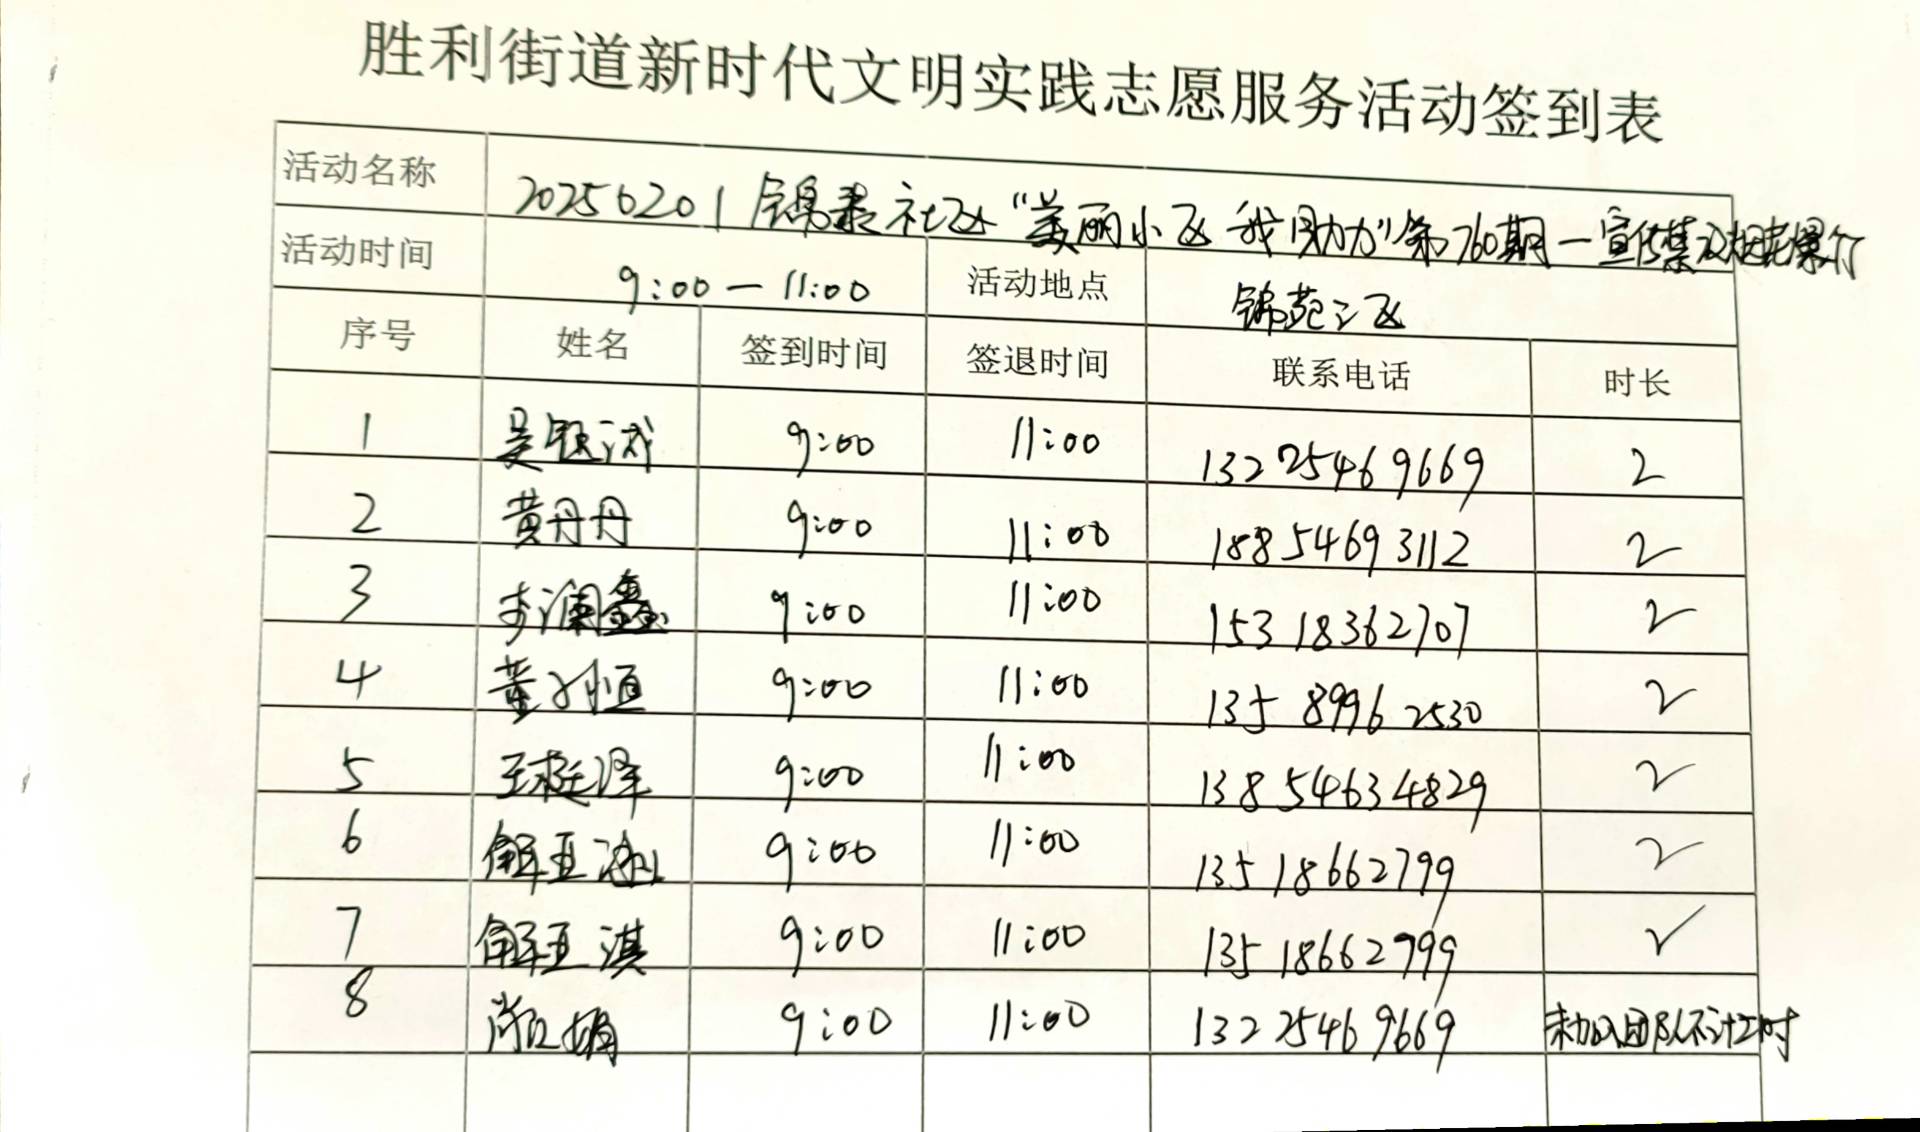 胜利街道新时代文明实践志愿服务活动签到表
活动名称 20250201 锦泰社区“美丽小区 我助力”第760期—宣传集
活动时间 9:00—11:00 活动地点 锦苑三区
序号 姓名 签到时间 签退时间 联系电话 时长
1 9:00 11:00 13225469669 2
2 黄丹丹 9:00 11:00 18854693112 2
3 李澜鑫 9:00 11:00 15318362707 2
4 董恒 9:00 11:00 13589962530 2
5 王挺泽 9:00 11:00 13854634829 2
6 解亚 9:00 11:00 13518662799 2
7 解亚淇 9:00 11:00 13518662799 2
8 娟 9:00 11:00 13225469669 未加入团队不计工时